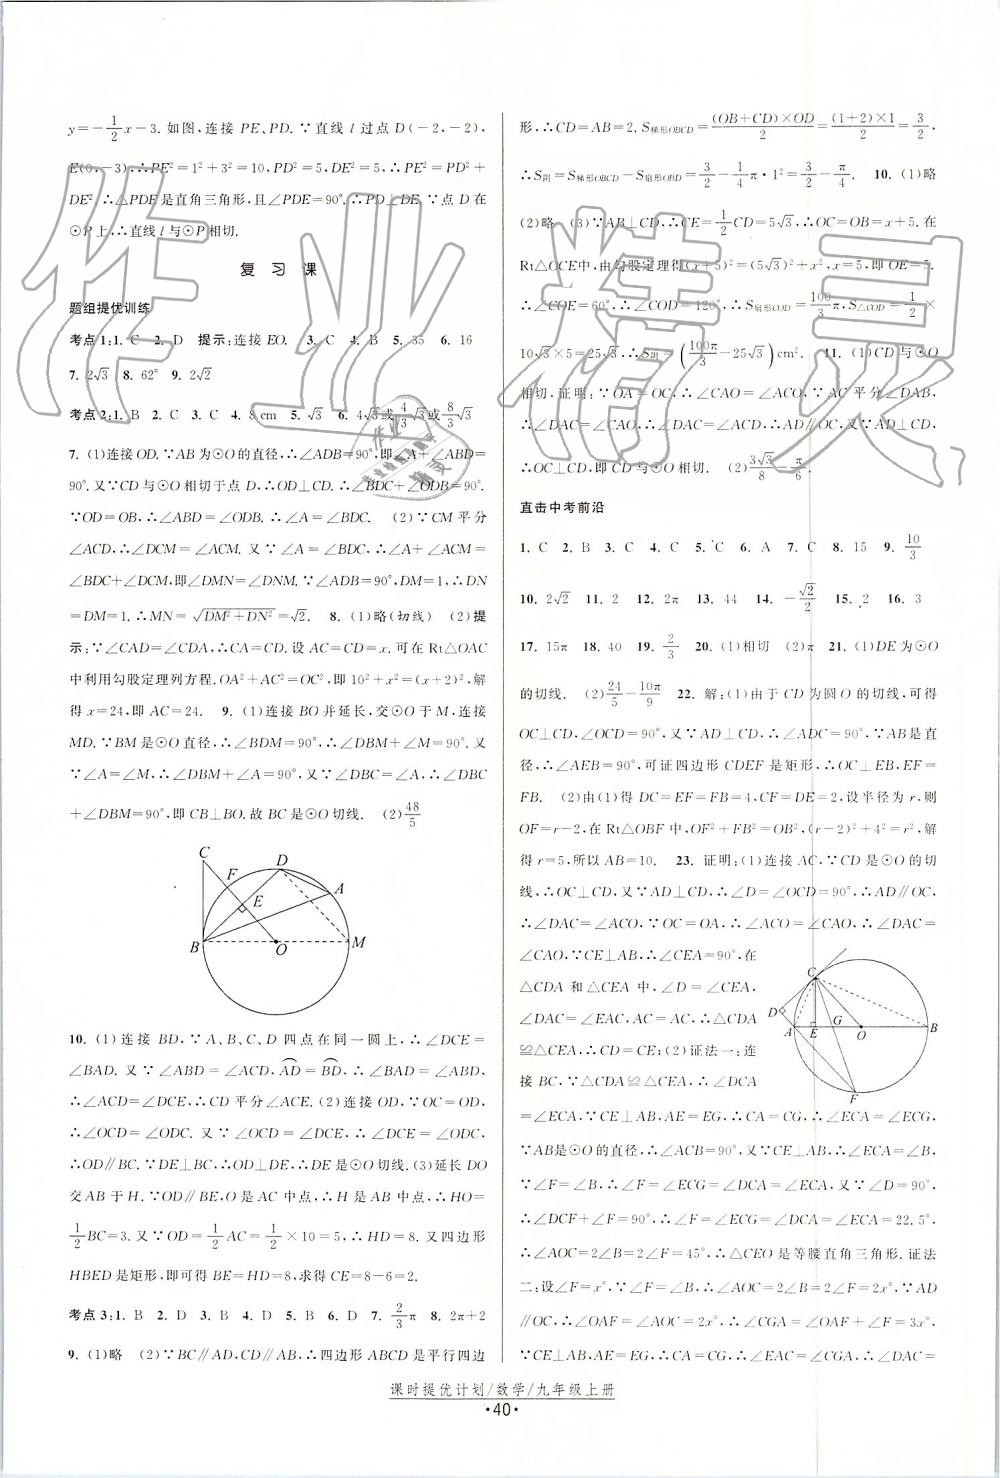 y=-1/2x-3. 如图,连接 PE、PD. ∵直线 l 过点 D(-2,-2),
E(0,-3),∴PE²=1²+3²=10,PD²=5,DE²=5,∴PE²=PD²+
DE². ∴△PDE是直角三角形,且∠PDE=90°. ∴PD⊥DE. ∵点 D 在
⊙P上,∴直线 l 与⊙P相切.
复 习 课
题组提优训练
考点1:1. C 2. D 提示:连接EO. 3. C 4. B 5. 35 6. 16
7. 2√3 8. 62° 9. 2√2
考点2:1. B 2. C 3. C 4. 8 cm 5. √3 6. 4√3或4/3√3或8/3√3
7. (1)连接OD. ∵AB为⊙O的直径,∴∠ADB=90°,即∠A+∠ABD=
90°. 又∵CD与⊙O相切于点D,∴OD⊥CD,∴∠BDC+∠ODB=90°.
∵OD=OB,∴∠ABD=∠ODB. ∴∠A=∠BDC. (2)∵CM平分
∠ACD,∴∠DCM=∠ACM. 又∵∠A=∠BDC,∴∠A+∠ACM=
∠BDC+∠DCM,即∠DMN=∠DNM. ∵∠ADB=90°,DM=1,∴DN
=DM=1. ∴MN=√(DM²+DN²)=√2. 8. (1)略(切线) (2)提
示:∵∠CAD=∠CDA,∴CA=CD. 设 AC=CD=x. 可在 Rt△OAC
中利用勾股定理列方程. OA²+AC²=OC²,即 10²+x²=(x+2)²,解
得x=24,即AC=24. 9. (1)连接 BO并延长,交⊙O于M,连接
MD. ∵BM是⊙O直径,∴∠BDM=90°,∴∠DBM+∠M=90°. 又
∵∠A=∠M,∴∠DBM+∠A=90°. 又∵∠DBC=∠A,∴∠DBC
+∠DBM=90°,即CB⊥BO. 故BC是⊙O切线. (2)48/5
C
D
F
A
E
B
O
M
10. (1)连接 BD,∵A、B、C、D 四点在同一圆上,∴∠DCE=
∠BAD. 又∵∠ABD=∠ACD,AD=BD,∴∠ABD=∠BAD,
∴∠ACD=∠DCE,∴CD平分∠ACE. (2)连接OD,∵OC=OD,
∴∠OCD=∠ODC. 又∵∠OCD=∠DCE,∴∠DCE=∠ODC,
∴OD∥BC. ∵DE⊥BC,∴OD⊥DE,∴DE是⊙O切线. (3)延长DO
交AB于H. ∵OD∥BE,O是AC中点,∴H是AB中点,∴HO=
1/2BC=3. 又∵OD=1/2AC=1/2×10=5,∴HD=8. 又四边形
HBED是矩形,即可得BE=HD=8,求得CE=8-6=2.
考点3:1. B 2. D 3. B 4. D 5. B 6. D 7. 2/3π 8. 2π+2
9. (1)略 (2)∵BC∥AD,CD∥AB,∴四边形ABCD是平行四边
形,∴CD=AB=2. S梯形OBCD=(OB+CD)×OD/2=(1+2)×1/2=3/2.
∴S阴=S梯形OBCD-S扇形OBD=3/2-1/4π·1²=3/2-π/4. 10. (1)略
(2)略 (3)∵AB⊥CD,∴CE=1/2CD=5√3,∴OC=OB=x+5. 在
Rt△OCE中,由勾股定理得(x+5)²=(5√3)²+x²,x=5,即OE=5.
∴∠COE=60°,∴∠COD=120°,∴S扇形COD=100/3π,S△COD=1/2×
10√3×5=25√3,∴S阴=(100π/3-25√3)cm². 11. (1)CD与⊙O
相切,证明:∵OA=OC,∴∠CAO=∠ACO. ∵AC平分∠DAB,
∴∠DAC=∠CAO,∴∠DAC=∠ACO,∴AD∥OC. 又∵AD⊥CD,
∴OC⊥CD,即CD与⊙O相切. (2)3√3/8-π/6.
直击中考前沿
1. C 2. B 3. C 4. C 5. C 6. A 7. C 8. 15 9. 10/3
10. 2√2 11. 2 12. 2π 13. 44 14. -√2/2 15. 2 16. 3
17. 15π 18. 40 19. 2/3 20. (1)相切 (2)π 21. (1)DE为⊙O
的切线. (2)24/5-10π/9 22. 解:(1)由于CD为圆O的切线,可得
OC⊥CD,∠OCD=90°. 又∵AD⊥CD,∴∠ADC=90°,∵AB是直
径,∴∠AEB=90°,可证四边形CDEF是矩形,∴OC⊥EB,EF=
FB. (2)由(1)得 DC=EF=FB=4,CF=DE=2,设半径为r,则
OF=r-2,在Rt△OBF中,OF²+FB²=OB²,(r-2)²+4²=r²,解
得r=5,所以AB=10. 23. 证明:(1)连接AC,∵CD是⊙O的切
线,∴OC⊥CD,又∵AD⊥CD,∴∠D=∠OCD=90°,∴AD∥OC,
∴∠DAC=∠ACO,∵OC=OA,∴∠ACO=∠CAO,∴∠DAC=
∠CAO,∵CE⊥AB,∴∠CEA=90°,在
△CDA 和△CEA 中,∠D=∠CEA,
∠DAC=∠EAC,AC=AC,∴△CDA
≌△CEA,∴CD=CE;(2)证法一:连
接BC,∵△CDA≌△CEA,∴∠DCA
=∠ECA,∵CE⊥AB,AE=EG,∴CA=CG,∴∠ECA=∠ECG,
∵AB是⊙O的直径,∴∠ACB=90°,又∵CE⊥AB,∴∠ECA=∠B,
∵∠F=∠B,∴∠F=∠ECG=∠DCA=∠ECA,∵∠D=90°,
∴∠DCF+∠F=90°,∴∠F=∠ECG=∠DCA=∠ECA=22.5°,
∴∠AOC=2∠B=2∠F=45°,∴△CEO是等腰直角三角形. 证法
二:设∠F=x°,∵∠F=∠B,∴∠AOC=2∠B=2∠F=2x°,∵AD
∥OC,∴∠OAF=∠AOC=2x°,∴∠CGA=∠OAF+∠F=3x°,
∵CE⊥AB,AE=EG,∴CA=CG,∴∠EAC=∠CGA,∴∠DAC=
C
D
A
E
G
O
B
F
课时提优计划/数学/九年级上册
·40·
作业精灵